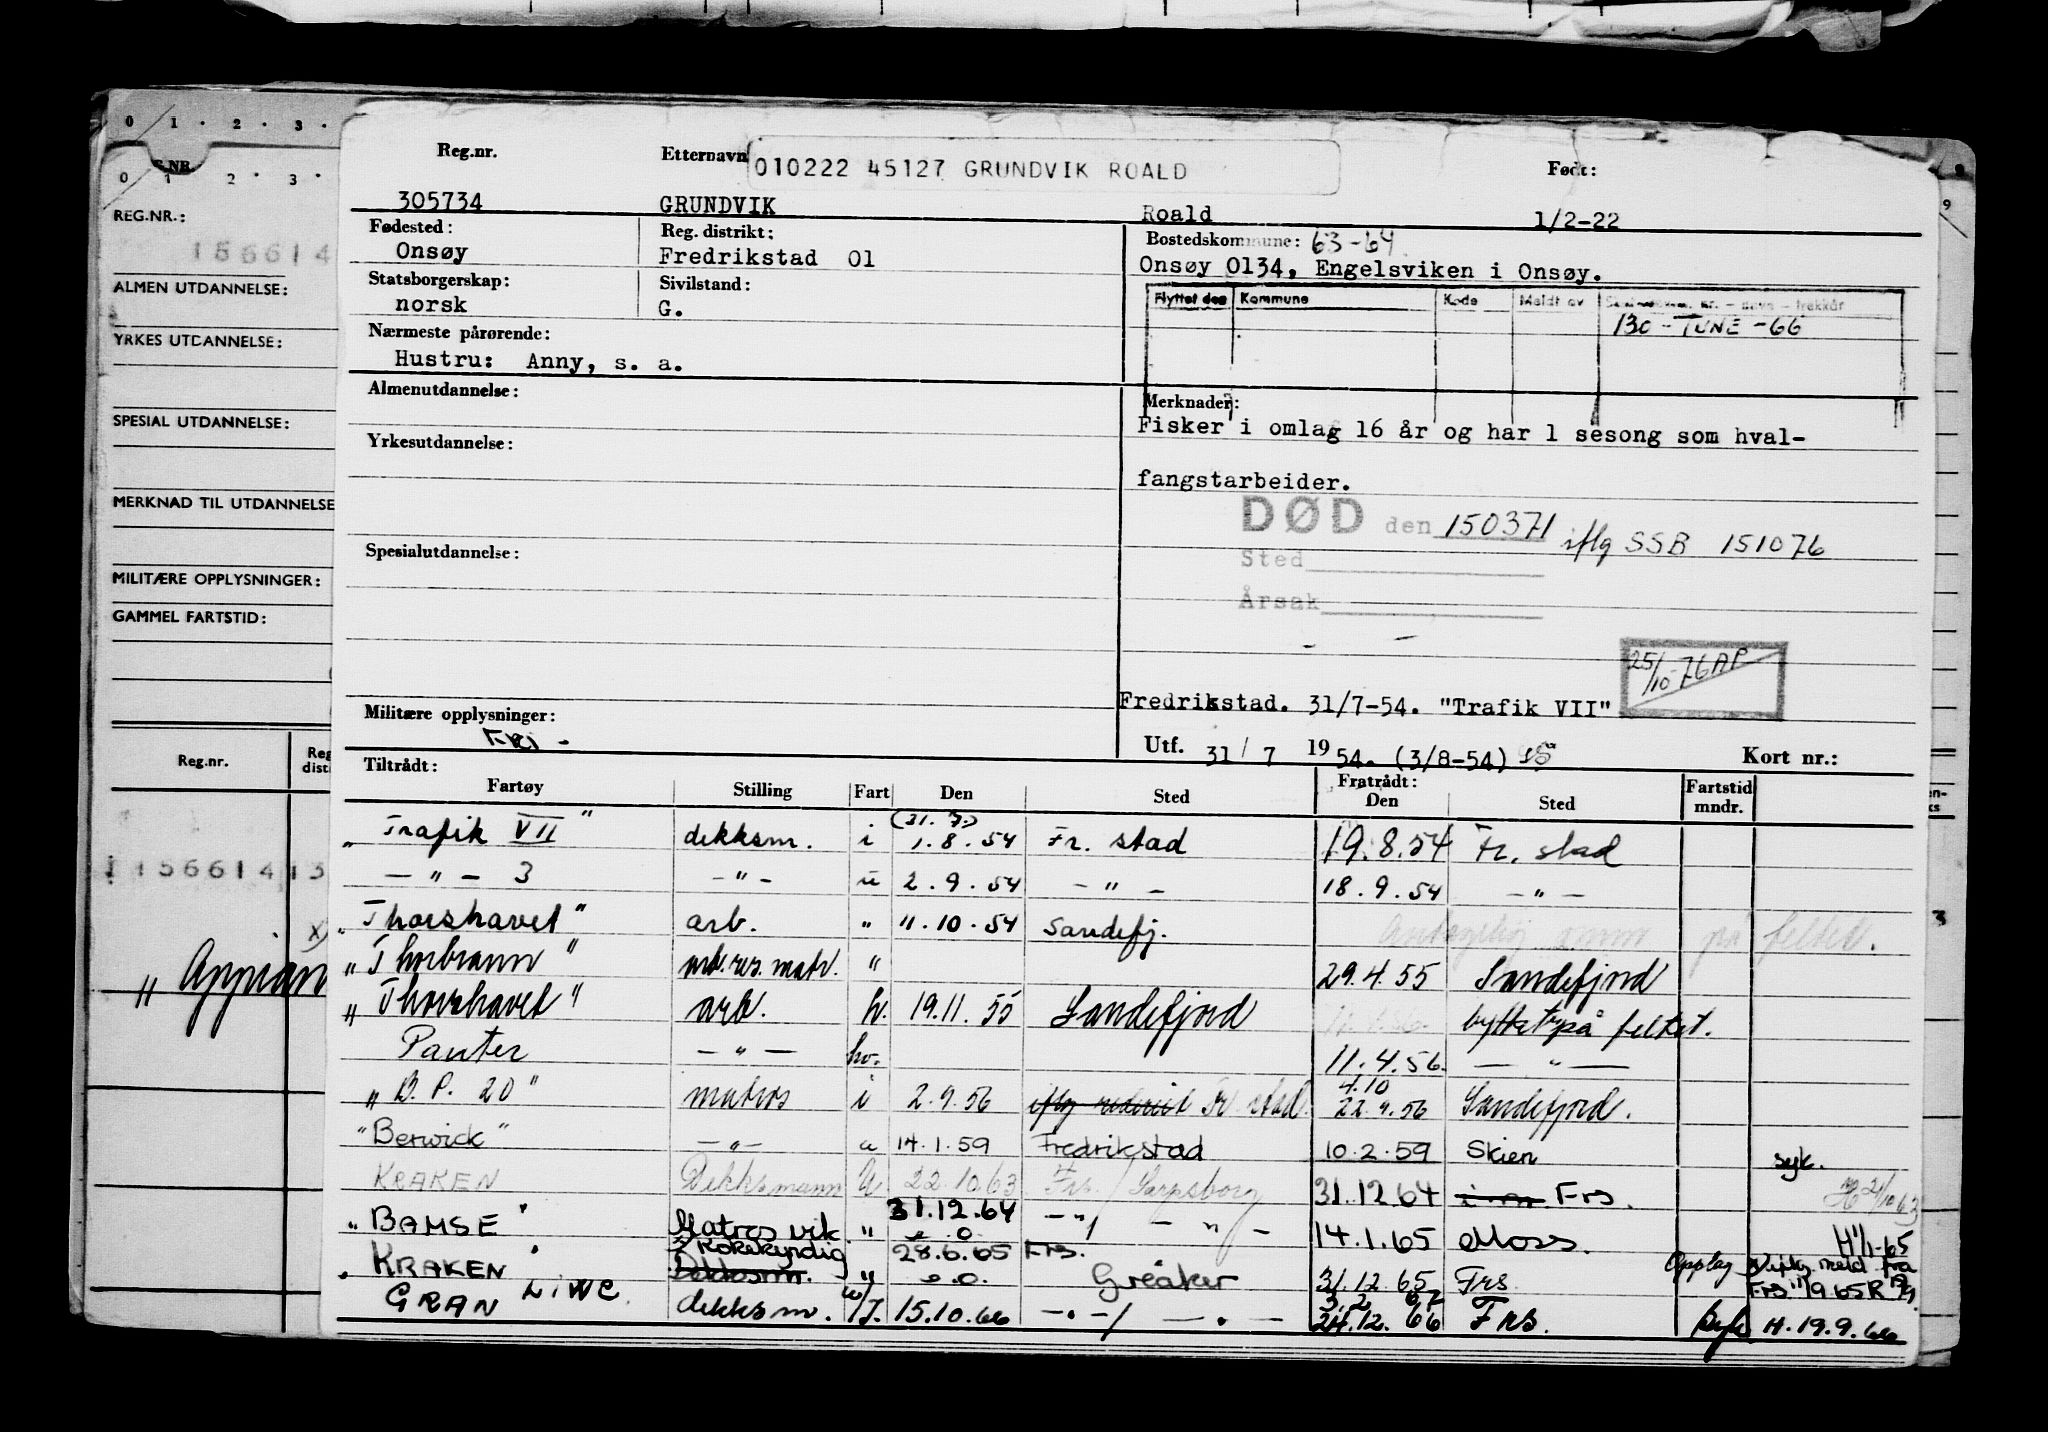 0 1 · 2 · 3 ·
S.NR.
0 1 2 · 3 ·
REG.NR.:
156614
ALMEN UTDANNELSE:
YRKES UTDANNELSE:
SPESIAL UTDANNELSE:
MERKNAD TIL UTDANNELSE
MILITÆRE OPPLYSNINGER:
GAMMEL FARTSTID:
Reg.nr.
Reg
distr
156614 13
x)
9
3
Reg.nr. Etternavn 010222 45127 GRUNDVIK ROALD Født:
305734 GRUNDVIK Roald 1/2-22
Fødested: Reg. distrikt: Bostedskommune: 63-64.
Onsøy Fredrikstad 01 Onsøy 0134, Engelsviken i Onsøy.
Statsborgerskap: Sivilstand: Flyttet den Kommune Kode Meldt av
norsk G. 130 - TUNE - 66
Nærmeste pårørende:
Hustru: Anny, s. a.
Almenutdannelse: Merknader:
Fisker i omlag 16 år og har 1 sesong som hval-
Yrkesutdannelse:
fangstarbeider.
DØD den 150371 iflg SSB 151076
Spesialutdannelse: Sted
Årsak
25/10-76 AP
Fredrikstad. 31/7-54. "Trafik VII"
Militære opplysninger:
FRI - Utf. 31/ 7 19 54. (3/8-54) Kort nr.:
Tiltrådt: Fratrådt:
Fartøy Stilling Fart Den Sted Den Sted Fartstid mndr.
(31.7.)
„Trafik VII" dekksm. i 1.8.54 Fr. stad 19.8.54 Fr. stad
— " — 3 - " - u 2.9.54 - " - 18.9.54 - " -
„Thorshavet" arb. " 11.10.54 Sandefj. på feltet.
„Thorbrann" arb.res. matr. " 29.4.55 Sandefjord
„Thorshavet" arb. h. 19.11.55 Sandefjord byttet på feltet.
Panter — " — hv. 11.4.56. — " —
4.10
„B.P. 20" matros i 2.9.56 iflg rederiet Fr. stad. 22.9.56 Sandefjord.
"Berwick" - " - u 14.1.59 Fredrikstad 10.2.59 Skien syk.
KRAKEN Dekksmann U 22.10.63 Frs./Sarpsborg 31.12.64 Frs. 21/10 63
„BAMSE" Matros vik. " 31.12.64 e.o. - " / - " - 14.1.65 Moss. H 1/1-65
KRAKEN Kokekyndig Dekksm. " 28.6.65 e.o. Frs. Greåker 31.12.65 Frs. Opplag meld. fra Frs 11/9 65
GRAN LIWC. dekksm. U/I. 15.10.66 - " - / — " — 3.2.67 24.12.66 FRS. Syk H. 19.9.66